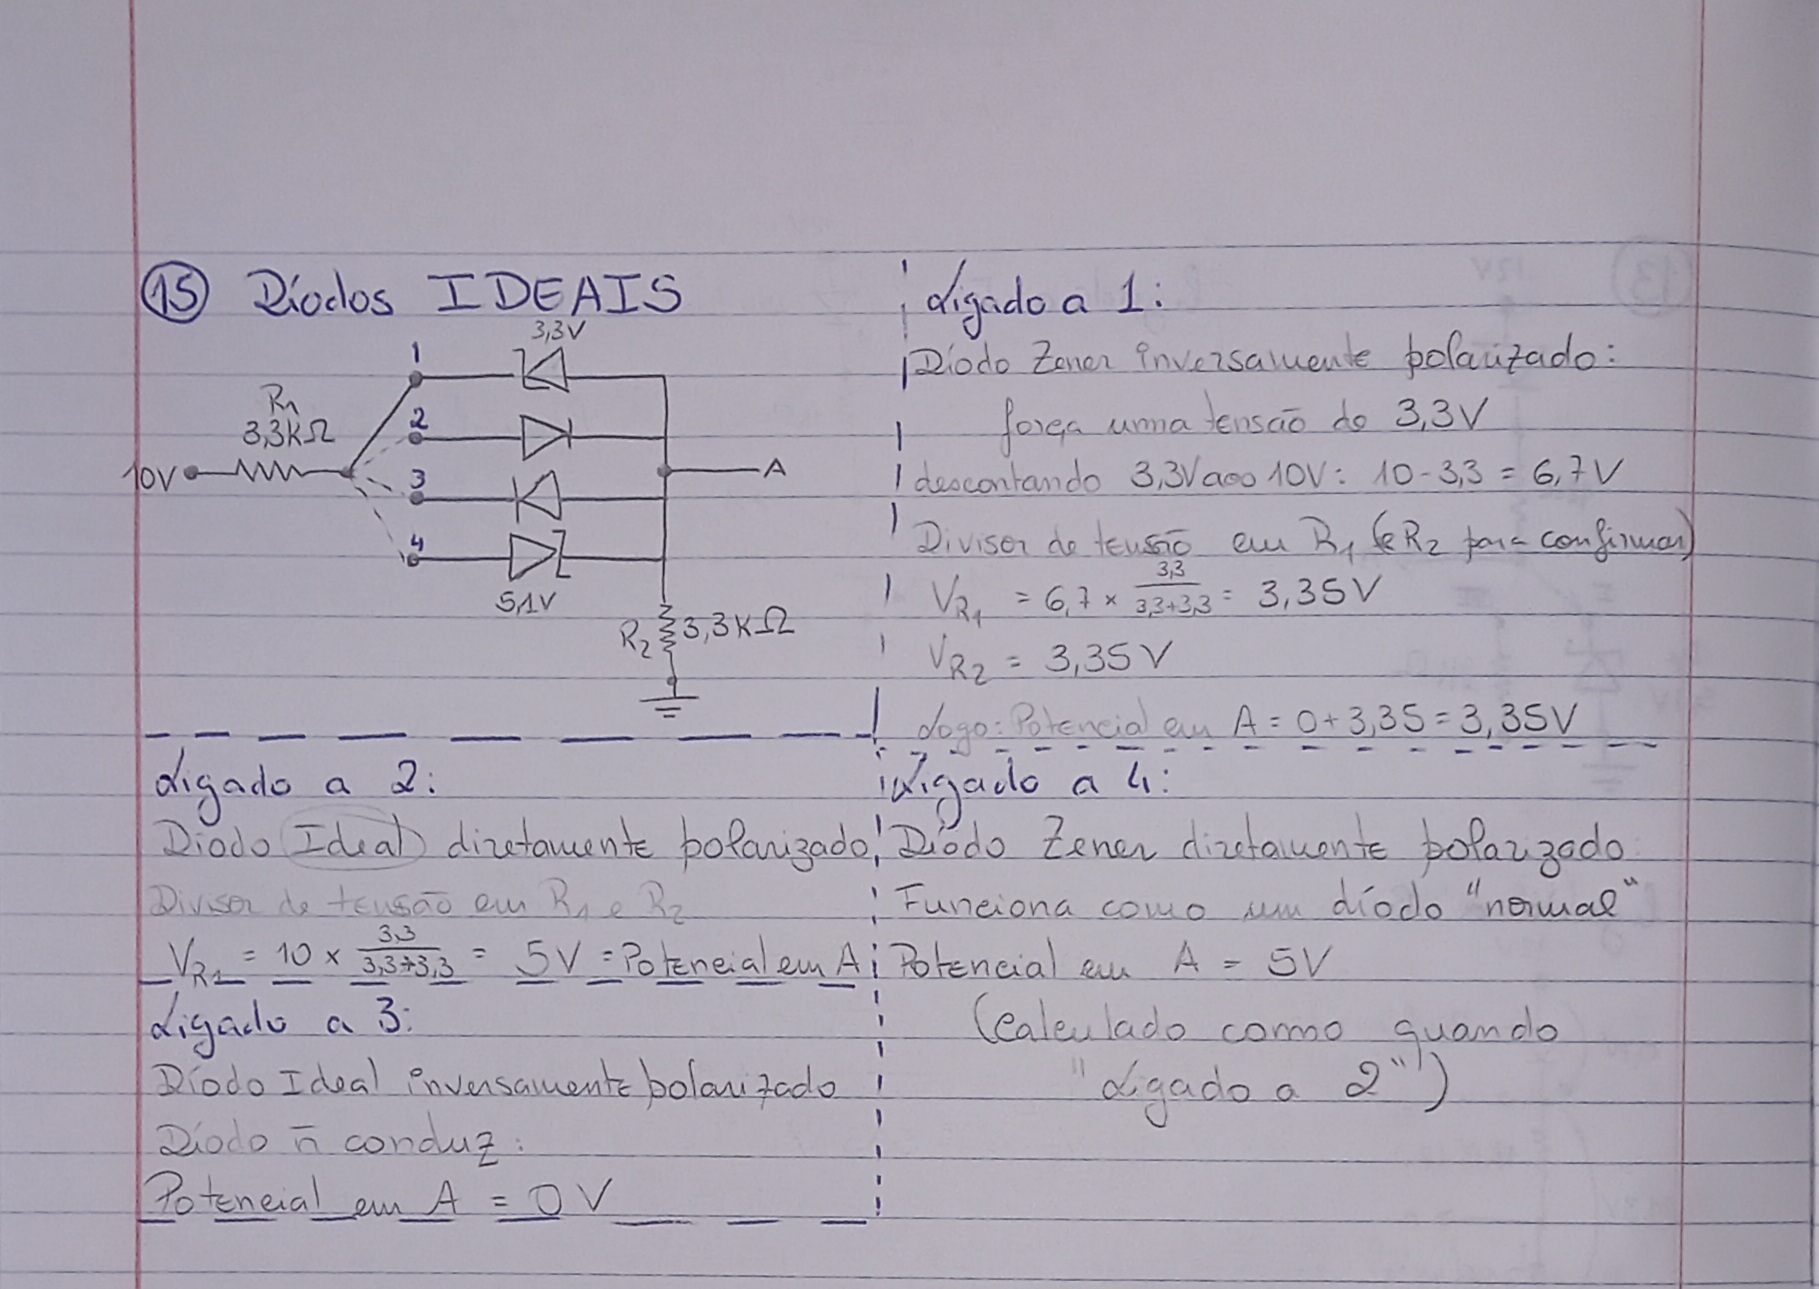 15 Díodos IDEAIS
3,3V
1
R1
3,3KΩ
2
10V
3
A
4
5,1V
R2 3,3KΩ
Ligado a 1:
Díodo Zener inversamente polarizado:
força uma tensão de 3,3V
descontando 3,3V aos 10V: 10-3,3 = 6,7V
Divisor de tensão em R1 (e R2 para confirmar)
VR1 = 6,7 × 3,3/3,3+3,3 = 3,35V
VR2 = 3,35V
Logo: Potencial em A = 0+3,35 = 3,35V
Ligado a 2:
Díodo Ideal diretamente polarizado
Divisor de tensão em R1 e R2
VR1 = 10 × 3,3/3,3+3,3 = 5V = Potencial em A
Ligado a 3:
Díodo Ideal inversamente polarizado
Díodo ñ conduz:
Potencial em A = 0V
Ligado a 4:
Díodo Zener diretamente polarizado
Funciona como um díodo "normal"
Potencial em A = 5V
(calculado como quando
"Ligado a 2")